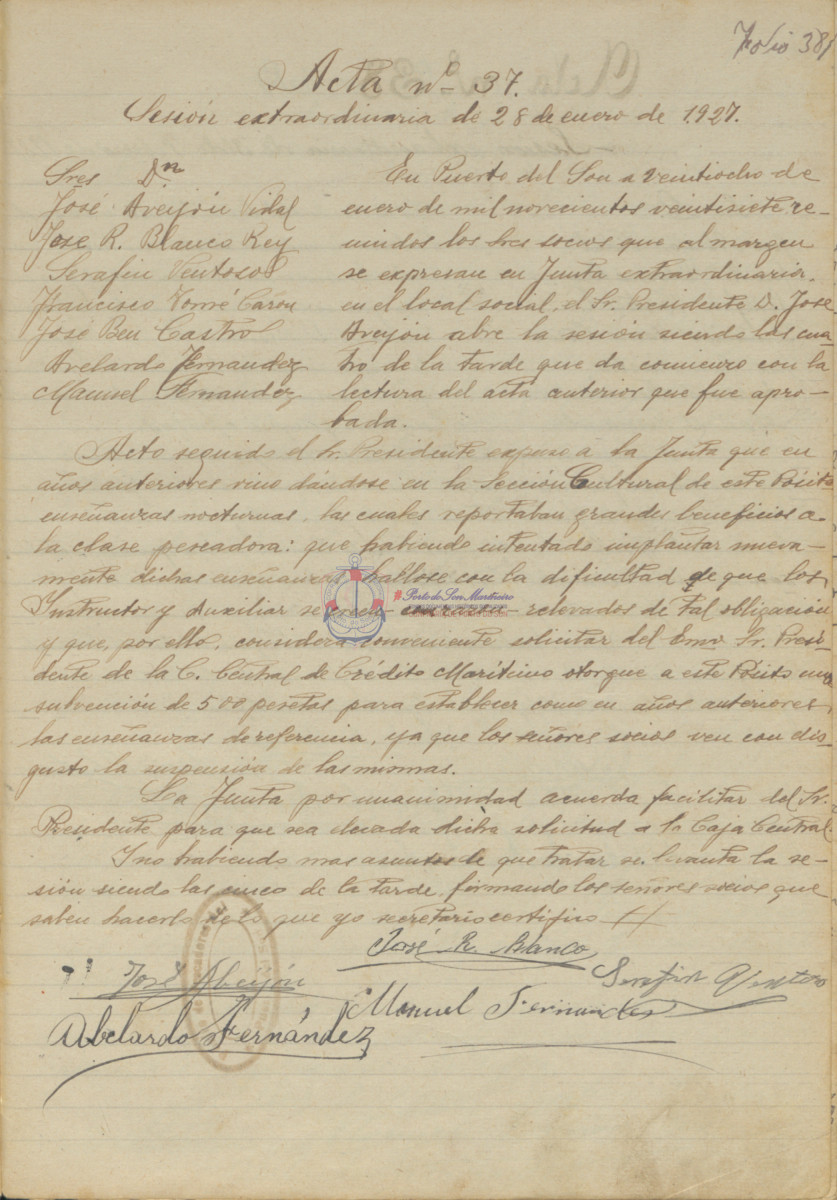 Folio 38
Acta nº 37.
Sesión extraordinaria de 28 de enero de 1.927.
Sres Dn
José Aveijón Vidal
Jose R. Blanco Rey
Serafin Ventoso
Francisco Torré Caron
José Ben Castro
Avelardo Fernandez
Manuel Fernandez
En Puerto del Son a veintiocho de
enero de mil novecientos veintisiete re-
unidos los Sres socios que al margen
se expresan en Junta extraordinaria,
en el local social, el Sr. Presidente D. Jose
Aveijón abre la sesión siendo las cua-
tro de la tarde que da comienzo con la
lectura del acta anterior que fue apro-
bada.
Acto seguido el Sr. Presidente expuso a la Junta que en
años anteriores vino dándose en la Sección Cultural de este Pósito
enseñanzas nocturnas, las cuales reportaban grandes beneficios a
la clase pescadora: que habiendo intentado implantar nueva-
mente dichas enseñanzas hallose con la dificultad de que los
Instructor y Auxiliar se relevados de tal obligación
Porto do Son Mariñeiro
y que, por ello, considera conveniente solicitar del Exmo Sr. Presi-
dente de la C. Central de Crédito Marítimo otorgue a este Pósito una
subvención de 500 pesetas para establecer como en años anteriores
las enseñanzas de referencia, ya que los señores socios ven con dis-
gusto la suspensión de las mismas.
La Junta por unanimidad acuerda facilitar del Sr.
Presidente para que sea elevada dicha solicitud a la Caja Central
I no habiendo mas asuntos de que tratar se levanta la se-
sión siendo las cinco de la tarde, firmando los señores socios que
saben hacerlo de lo que yo secretario certifico
José R. Blanco
José Abeijón
Serafin Ventoso
Manuel Fernandez
Abelardo Fernández